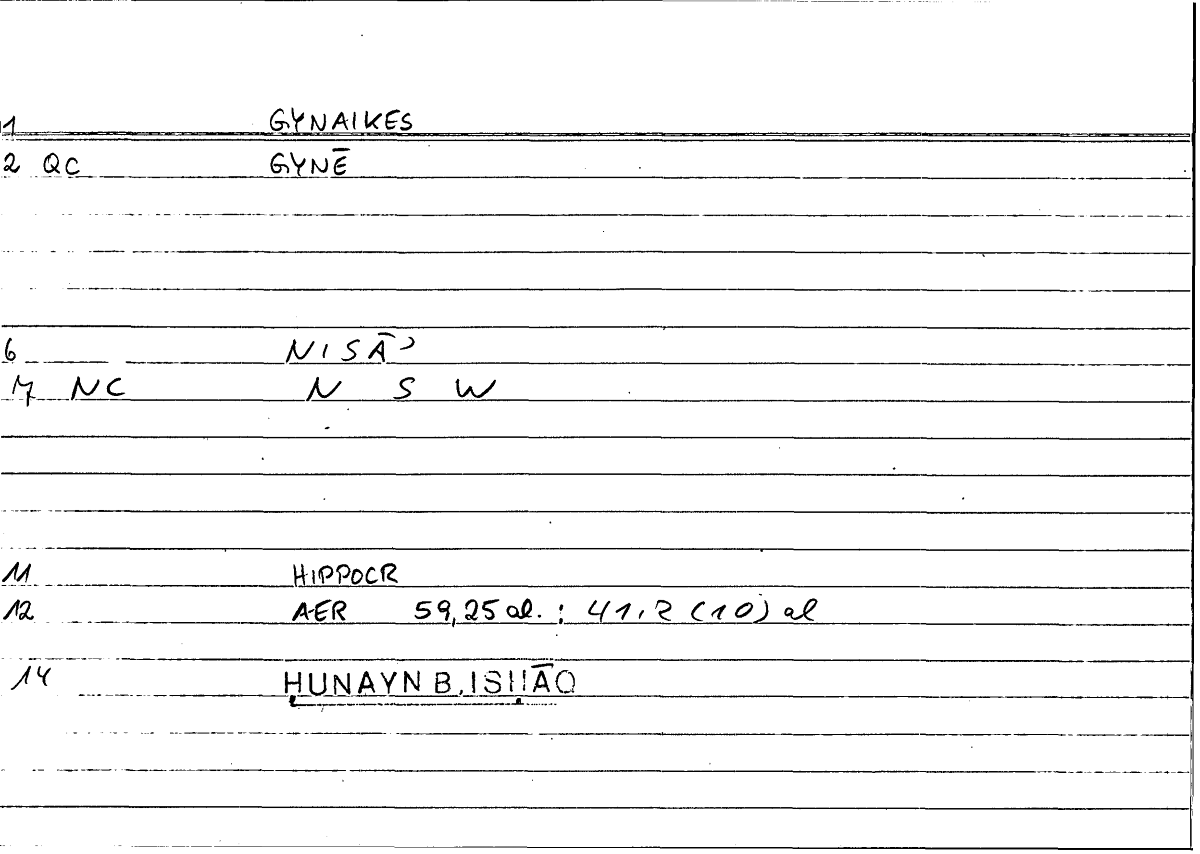 1 GYNAIKES
2 QC GYNĒ
6 NISĀʾ
7 NC N S W
11 HIPPOCR
12 AER 59,25 al. ; 41,2 (10) al
14 ḤUNAYN B. ISḤĀQ